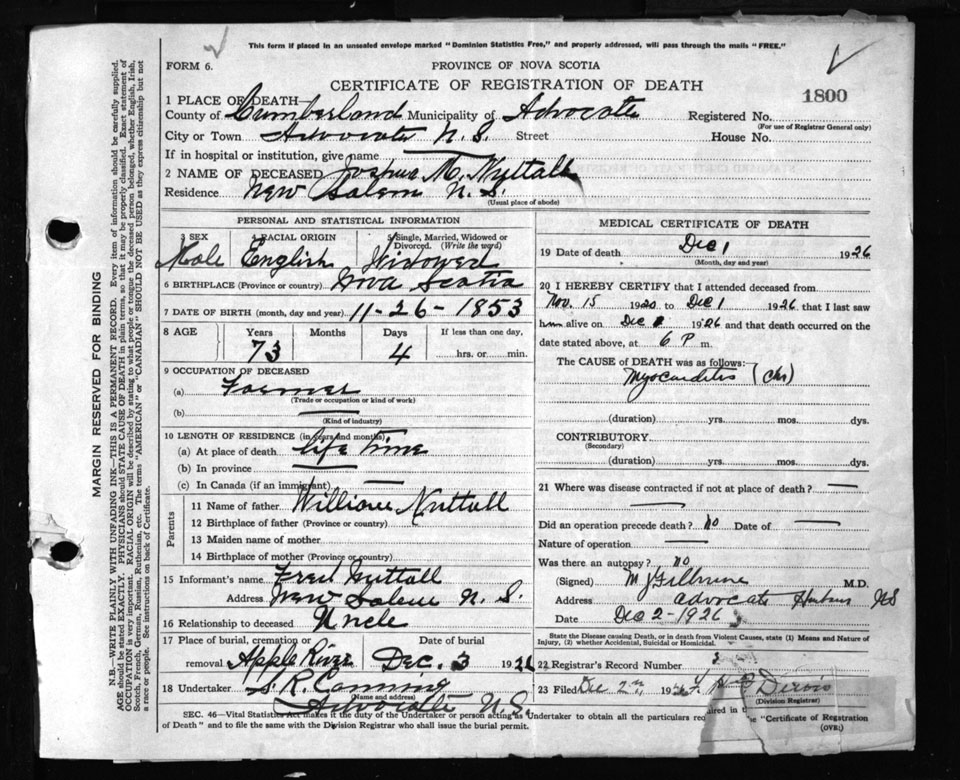 This form if placed in an unsealed envelope marked "Dominion Statistics Free," and properly addressed, will pass through the mails "FREE."
FORM 6.
PROVINCE OF NOVA SCOTIA
CERTIFICATE OF REGISTRATION OF DEATH
1800
1 PLACE OF DEATH—
County of Cumberland Municipality of Advocate Registered No.
(For use of Registrar General only)
City or Town Advocate N.S. Street House No.
If in hospital or institution, give name —
2 NAME OF DECEASED Joshua M. Nuttall
Residence New Salem N.S.
(Usual place of abode)
PERSONAL AND STATISTICAL INFORMATION
3 SEX 4 RACIAL ORIGIN 5 Single, Married, Widowed or Divorced. (Write the word)
Male English Widowed
6 BIRTHPLACE (Province or country) Nova Scotia
7 DATE OF BIRTH (month, day and year) 11-26-1853
8 AGE Years Months Days If less than one day,
73 4 hrs. or min.
9 OCCUPATION OF DECEASED
(a) Farmer
(Trade or occupation or kind of work)
(b) —
(Kind of industry)
10 LENGTH OF RESIDENCE (in years and months)
(a) At place of death life time
(b) In province —
(c) In Canada (if an immigrant) —
Parents
11 Name of father William Nuttall
12 Birthplace of father (Province or country)
13 Maiden name of mother
14 Birthplace of mother (Province or country)
15 Informant's name Fred Nuttall
Address New Salem N.S.
16 Relationship to deceased Uncle
17 Place of burial, cremation or removal Date of burial
Apple River Dec. 3 1926
18 Undertaker S. R. Canning
(Name and address)
Advocate N.S.
MEDICAL CERTIFICATE OF DEATH
19 Date of death Dec 1 1926
(Month, day and year)
20 I HEREBY CERTIFY that I attended deceased from
Nov. 15 1920 to Dec 1 1926 that I last saw
him alive on Dec 1926 and that death occurred on
date stated above, at 6 P m.
The CAUSE of DEATH was as follows:
Myocarditis (chr)
(duration) yrs. mos. dys.
CONTRIBUTORY
(Secondary)
(duration) yrs. mos. dys.
21 Where was disease contracted if not at place of death? —
Did an operation precede death? no Date of —
Nature of operation —
Was there an autopsy? no
(Signed) M.D.
Address Advocate Harbour NS
Date Dec 2-1926
State the Disease causing Death, or in death from Violent Causes, state (1) Means and Nature of Injury, (2) whether Accidental, Suicidal or Homicidal.
22 Registrar's Record Number 3
23 Filed Dec 2nd, 192
(Division Registrar)
SEC. 46—Vital Statistics Act makes it the duty of the Undertaker or person acting as Undertaker to obtain all the particulars required in the "Certificate of Registration
of Death" and to file the same with the Division Registrar who shall issue the burial permit.
(OVER)
MARGIN RESERVED FOR BINDING
N.B.—WRITE PLAINLY WITH UNFADING INK—THIS IS A PERMANENT RECORD. Every item of information should be carefully supplied.
AGE should be stated EXACTLY. PHYSICIANS should STATE CAUSE OF DEATH in plain terms, so that it may be properly classified. Exact statement of
OCCUPATION is very important. RACIAL ORIGIN will be described by stating to what people or tongue the deceased person belonged, whether English, Irish,
Scotch, French, German, Russian, Ruthenian, etc. The terms "AMERICAN" or "CANADIAN" SHOULD NOT BE USED as they express citizenship but not
a race or people. See instructions on back of Certificate.